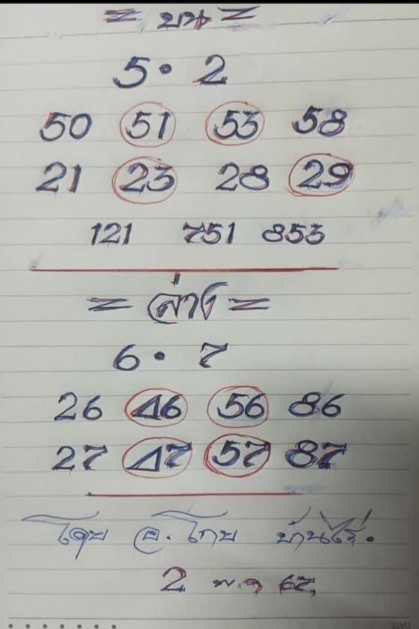 = บน =
5 • 2
50 51 53 58
21 23 28 29
121 751 853
= ล่าง =
6 • 7
26 46 56 86
27 47 57 87
โดย อ.โกย บ้านไร่.
2 พ.ค 67